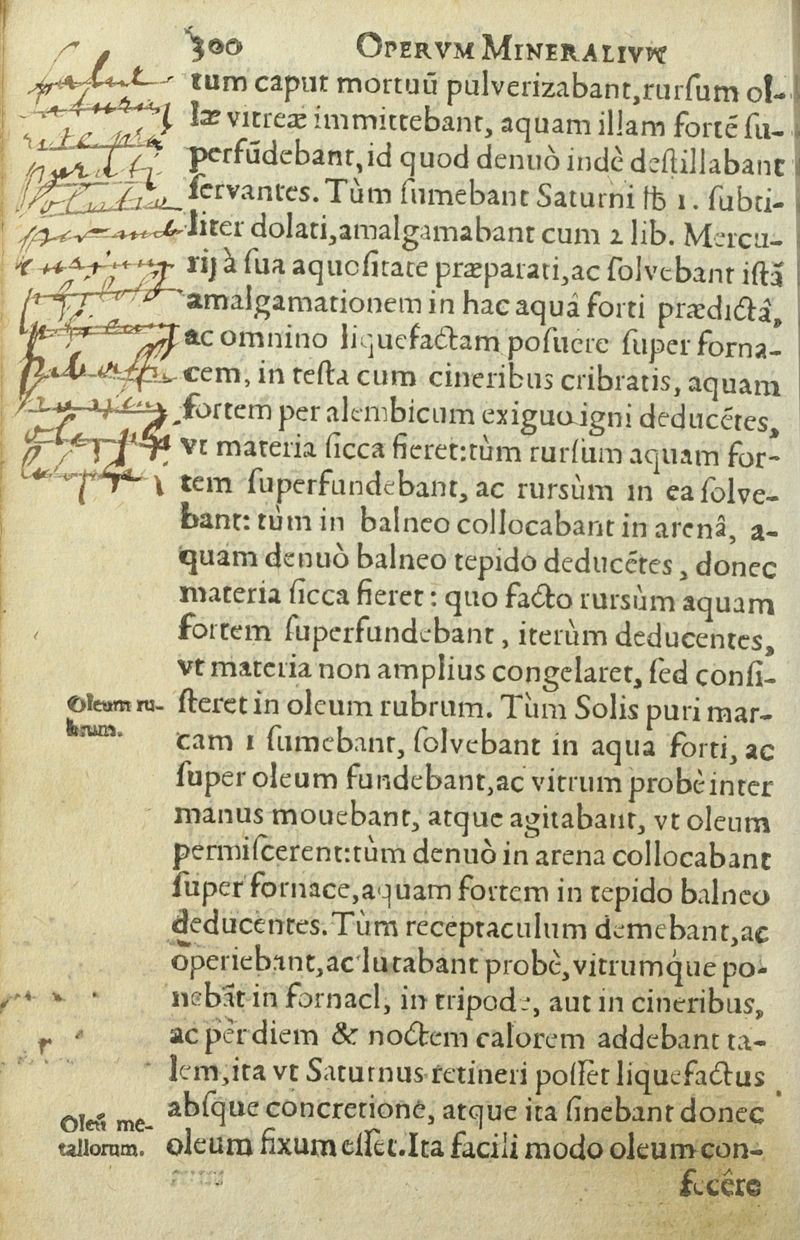 300 OPERVM MINERALIVM
tum caput mortuũ pulverizabant,rurſum ol-
læ vitreæ immittebant, aquam illam fortẽ ſu-
perfũdebant,id quod denuò indè deſtillabant
ſervantes. Tùm ſumebant Saturni ℔ 1. ſubti-
liter dolati,amalgamabant cum 2 lib. Mercu-
rij à ſua aquoſitate præparati,ac ſolvebant iſtã
amalgamationem in hac aquâ forti prædictâ,
ac omnino liquefactam poſuere ſuper forna-
cem, in teſta cum cineribus cribratis, aquam
fortem per alembicum exiguo igni deducẽtes,
vt materia ſicca fieret:tùm rurſùm aquam for-
tem ſuperfundebant, ac rursùm in ea ſolve-
bant: tùm in balneo collocabant in arenâ, a-
quam denuò balneo tepido deducẽtes, donec
materia ſicca fieret: quo facto rursùm aquam
fortem ſuperfundebant, iterùm deducentes,
vt materia non amplius congelaret, ſed conſi-
Oleum ru-
brum.
ſteret in oleum rubrum. Tùm Solis puri mar-
cam 1 ſumebant, ſolvebant in aqua forti, ac
ſuper oleum fundebant,ac vitrum probè inter
manus mouebant, atque agitabant, vt oleum
permiſcerent:tùm denuò in arena collocabant
ſuper fornace,aquam fortem in tepido balneo
deducentes.Tùm receptaculum demebant,ac
operiebant,ac lutabant probè,vitrumq́ue po-
nebãt in fornacl, in tripode, aut in cineribus,
ac pèr diem & noctem calorem addebant ta-
lem,ita vt Saturnus retineri poſſet liquefactus
Oleũ me-
tallorum.
abſque concretionẽ, atque ita ſinebant donec
oleum fixum eſſet.Ita facili modo oleum con-
fecêre